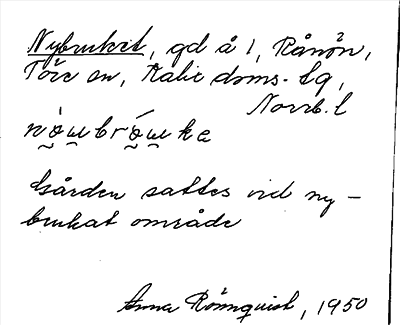 Nybruket, gd å 1, Rånön,
Töre sn, Kalix doms. lg,
Norrb. l
Gården sattes vid ny-
brukat område
Anna Rönnquist, 1950